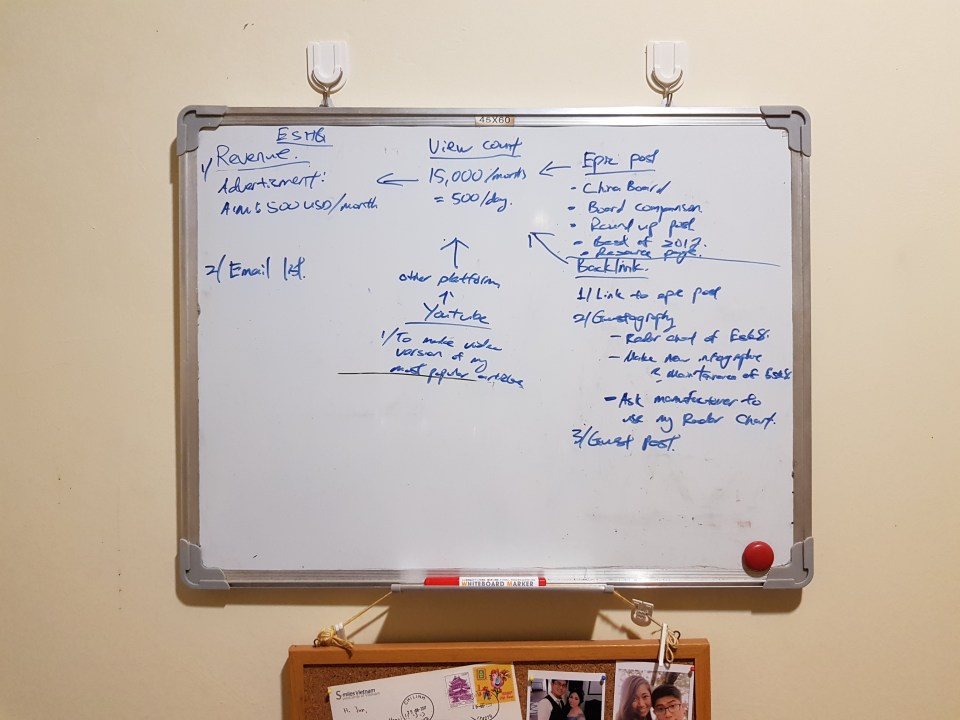 45X60
ESHG
1/ Revenue.
Advertisment:
Aim: 500 USD/month
2/ Email list.
View count
15,000/month
= 500/day.
other platform
Youtube
1/ To make video
version of my
most popular articles
Epic post
- China Board
- Board comparison
- Round up post
- Best of 2017.
- Resource page.
Backlink.
1/ Link to epic post
2/ Guestography
- Radar chart of
- Make new infographic
Maintenance of
- Ask manufacturer to
use my Radar Chart.
3/ Guest Post.
WHITEBOARD MARKER
Smiles Vietnam